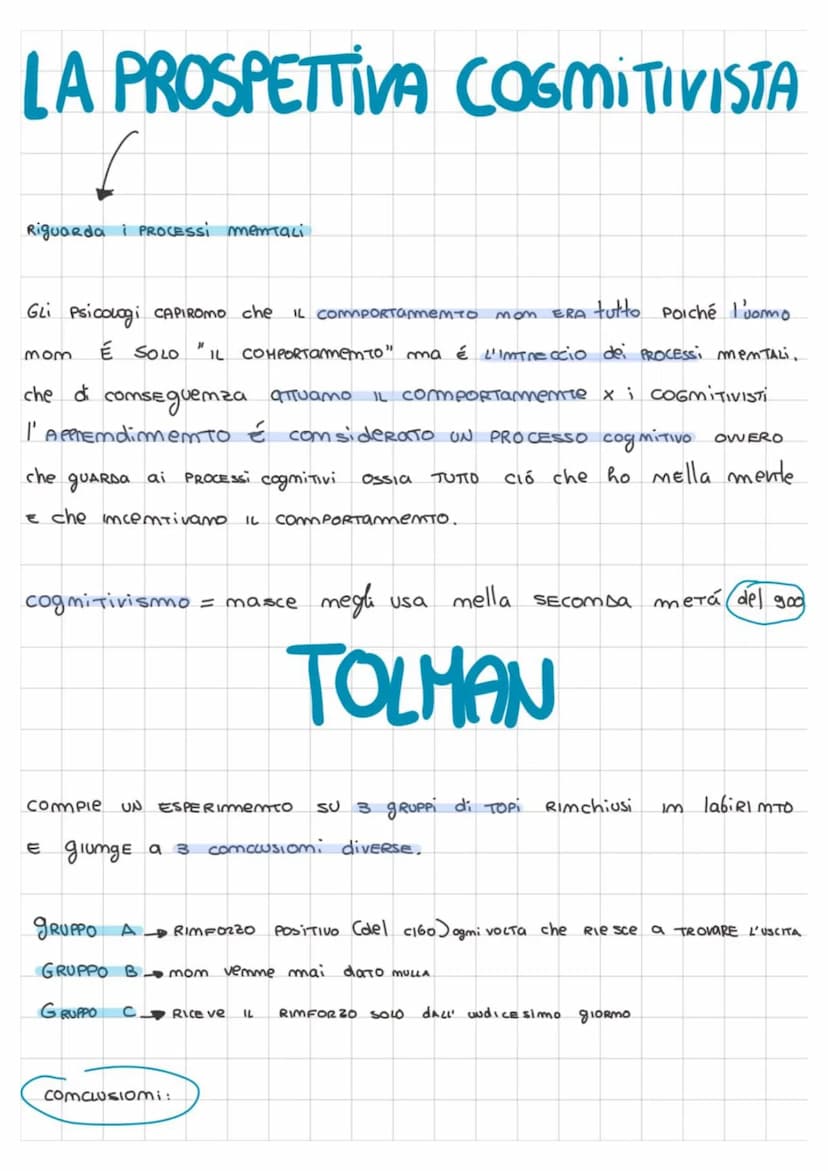 LA PROSPETTIVA COGNITIVISTA
Riguarda i PROCESSi mentali
Gli Psicologi CAPIRONO che IL comportamento non ERA tutto poiché l'uomo
non É SOLO "IL COMPORTAMENTO" ma é L'INTRECCIO dei PROCESSi MENTALI,
che di conseguenza attuano IL comportamente x i COGNITIVISTI
l'APPRENDIMENTO É considerato UN PROCESSO cognitivo OVVERO
che GUARDA ai PROCESSi cognitivi OSSIA TUTTO ció che ho nella mente
E che incentivano IL comportamento.
cognitivismo = nasce negli usa nella SECONDA metá del 900
TOLMAN
compie UN ESPERIMENTO SU 3 gruppi di TOPi Rinchiusi in labirinto
E giunge a 3 conclusioni diverse.
gruppo A → RINFORZO POSITIVO (del cibo) ogni volta che RiEsce a TROVARE L'USCITA
GRUPPO B → non venne mai dato NULLA
GRUPPO C → Riceve IL RINFORZO SOLO DALL' undicesimo giorno
conclusioni: